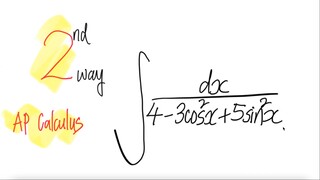 2nd
way
AP Calculus
∫ dx / (4-3cos²x+5sin²x).